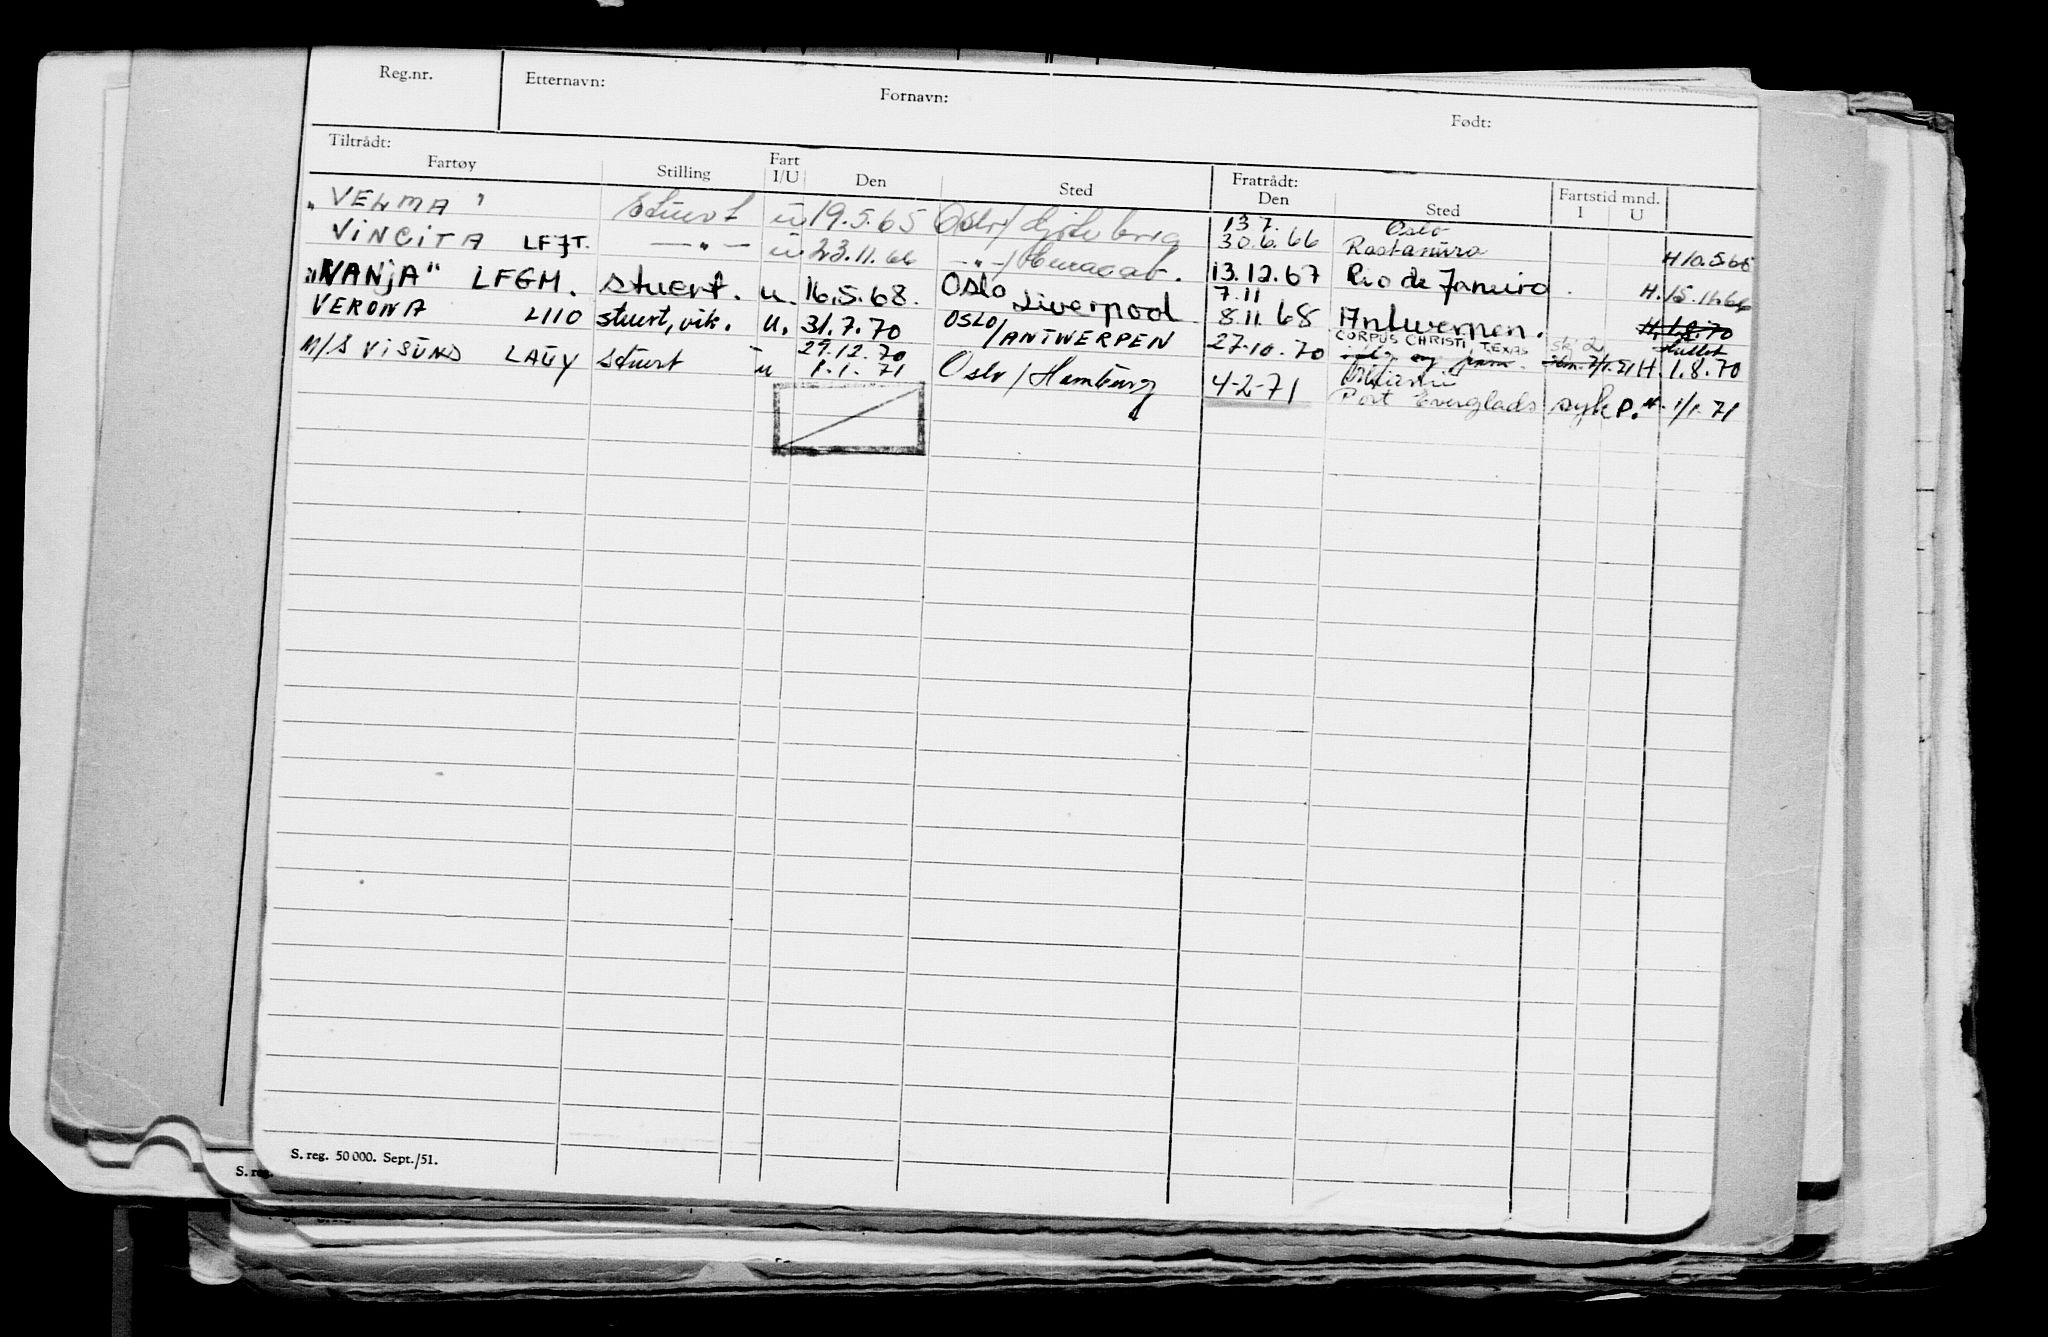 Reg.nr. Etternavn: Fornavn: Født:
Tiltrådt: Fratrådt:
Fartøy Stilling Fart I/U Den Sted Den Sted Fartstid mnd. I U
"VELMA" stuert u 19.5.65 Oslo/ 13 7. Oslo
30.6.66 Rastanura H 10.5.65
VINCITA LFJT. —"— u 23.11.66 —"—/ 13.12.67 Rio de Janeiro H. 15.11.66
"VANJA" LFGM. stuert. u. 16.5.68. Oslo Liverpool 7.11
8.11.68 Antwerpen. H. 1.8.70
VERONA LIIO stuert, vik. u. 31.7.70 OSLO/ANTWERPEN 27-10.70 CORPUS CHRISTI, TEXAS H. 1.8.70
29.12.70
M/S VISUND LAUY stuert u 1.1.71 Oslo/Hamburg 4-2-71 Port Everglads syk P.M. 1/1.71
S. reg. 50 000. Sept./51.
S. reg.